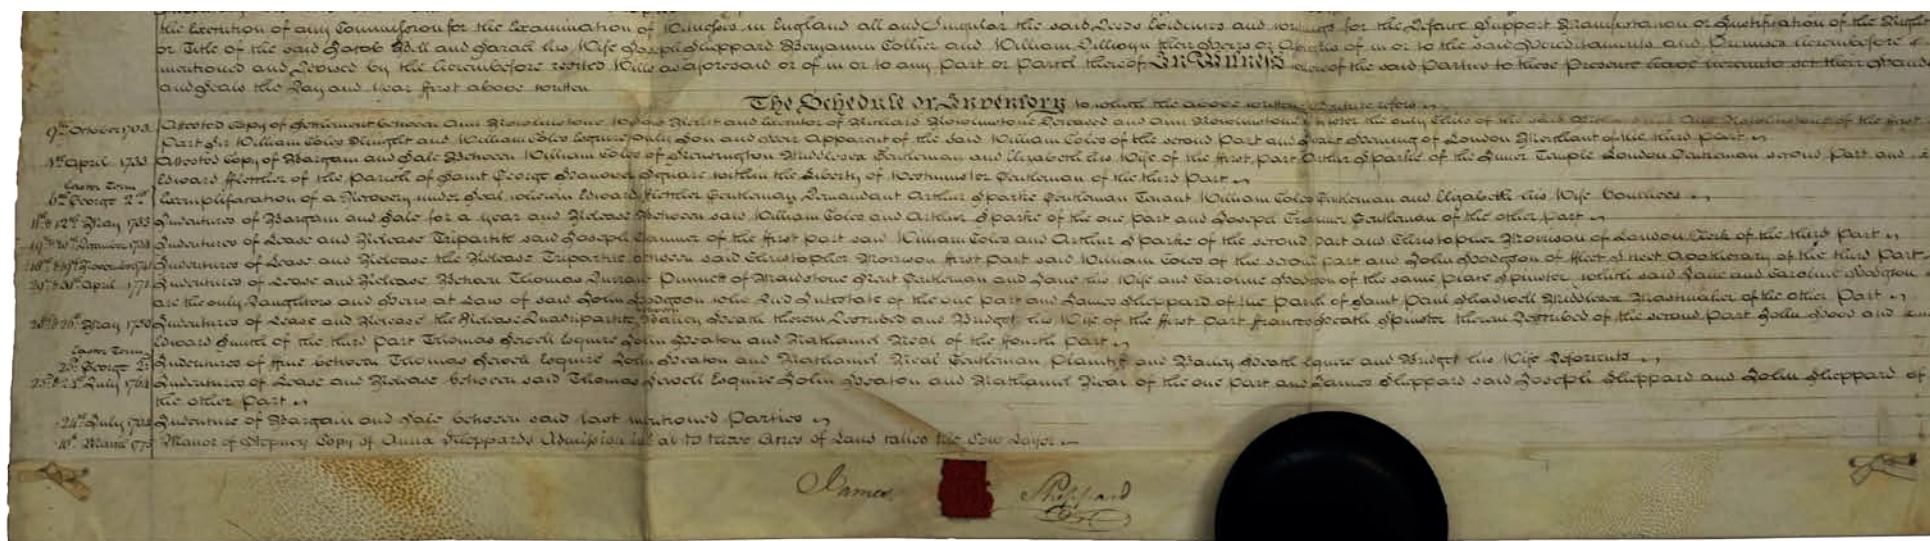 the Execution of any Commission for the Examination of Witnesses in England all and Singular the said Deeds Evidences and writings for the Defence Support Manifestation or Justification of the Right
or Title of the said Jacob Bell and Sarah his Wife Joseph Sheppard Benjamin Collier and William Dillwyn their Heirs or Assigns of in or to the said Hereditaments and Premises hereinbefore
mentioned and devised by the hereinbefore recited Wills as aforesaid or of in or to any Part or Parcel thereof In Witness whereof the said Parties to these Presents have hereunto set their Hands
and Seals the Day and Year first above written
The Schedule or Inventory to which the above written Indenture refers
9th October 1703 Attested Copy of Settlement between Ann Widow Relict and Executor of Richard Deceased and Ann Spinster the only Child of the said of the first
Part Sir William Coles Knight and William Coles Esquire only Son and Heir Apparent of the said William Coles of the second Part and of London Merchant of the third Part
April 1733 Attested Copy of Bargain and Sale Between William Coles of Kensington Middlesex Gentleman and Elizabeth his Wife of the first Part Arthur Sparke of the Inner Temple London Gentleman second Part and
Edward Fletcher of the Parish of Saint George Hanover Square within the Liberty of Westminster Gentleman of the third Part
Easter Term
6th George 2nd Exemplification of a Recovery under Seal wherein Edward Fletcher Gentleman Demandant Arthur Sparke Gentleman Tenant William Coles Gentleman and Elizabeth his Wife Vouchees
11th & 12th May 1733 Indentures of Bargain and Sale for a year and Release Between said William Coles and Arthur Sparke of the one Part and Joseph Cranmer Gentleman of the other Part
19th & 20th December Indentures of Lease and Release Tripartite said Joseph Cranmer of the first part said William Coles and Arthur Sparke of the second part and Christopher of London Clerk of the third Part
18th & 19th November Indentures of Lease and Release the Release Tripartite between said Christopher first Part said William Coles of the second part and John Hodgson of Fleet Street Apothecary of the third Part
April 1771 Indentures of Lease and Release Between Thomas Durrant Punnett of Maidstone Kent Gentleman and Jane his Wife and Caroline Hodgson of the same Place Spinster which said Jane and Caroline Hodgson
are the only Daughters and Heirs at Law of said John Hodgson who died Intestate of the one Part and James Sheppard of the Parish of Saint Paul Shadwell Middlesex Mastmaker of the other Part
May 1750 Indentures of Lease and Release the Release Quadripartite between Heath therein Described and Bridget his Wife of the first Part Frances Heath Spinster therein Described of the second Part John and
Edward Smith of the third Part Thomas Sewell Esquire John Heaton and Nathaniel Neal of the fourth Part
Easter Term
23rd George 2d Indentures of Fine between Thomas Sewell Esquire John Heaton and Nathaniel Neal Gentleman Plaintiffs and Heath Esquire and Bridget his Wife Deforciants
July 1764 Indentures of Lease and Release between said Thomas Sewell Esquire John Heaton and Nathaniel Neal of the one Part and James Sheppard said Joseph Sheppard and John Sheppard of
the other Part
24th July 1764 Indenture of Bargain and Sale between said last mentioned Parties
March Manor of Stepney Copy of Anna Sheppards Admission as to three Acres of Land called the Cow Layer
James Sheppard